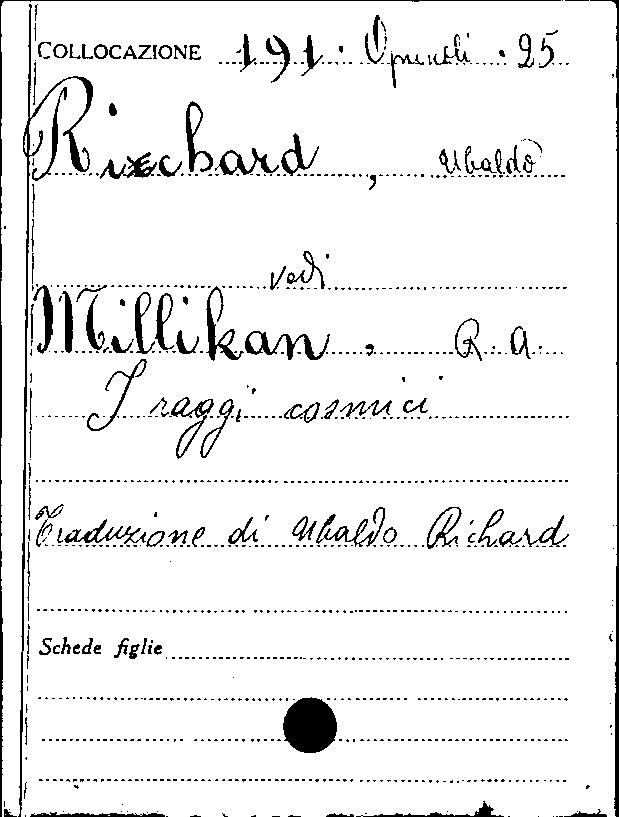 COLLOCAZIONE 191. Opuscoli. 25
Richard, Ubaldo
vedi
Millikan, R. A.
I raggi cosmici
Traduzione di Ubaldo Richard
Schede figlie